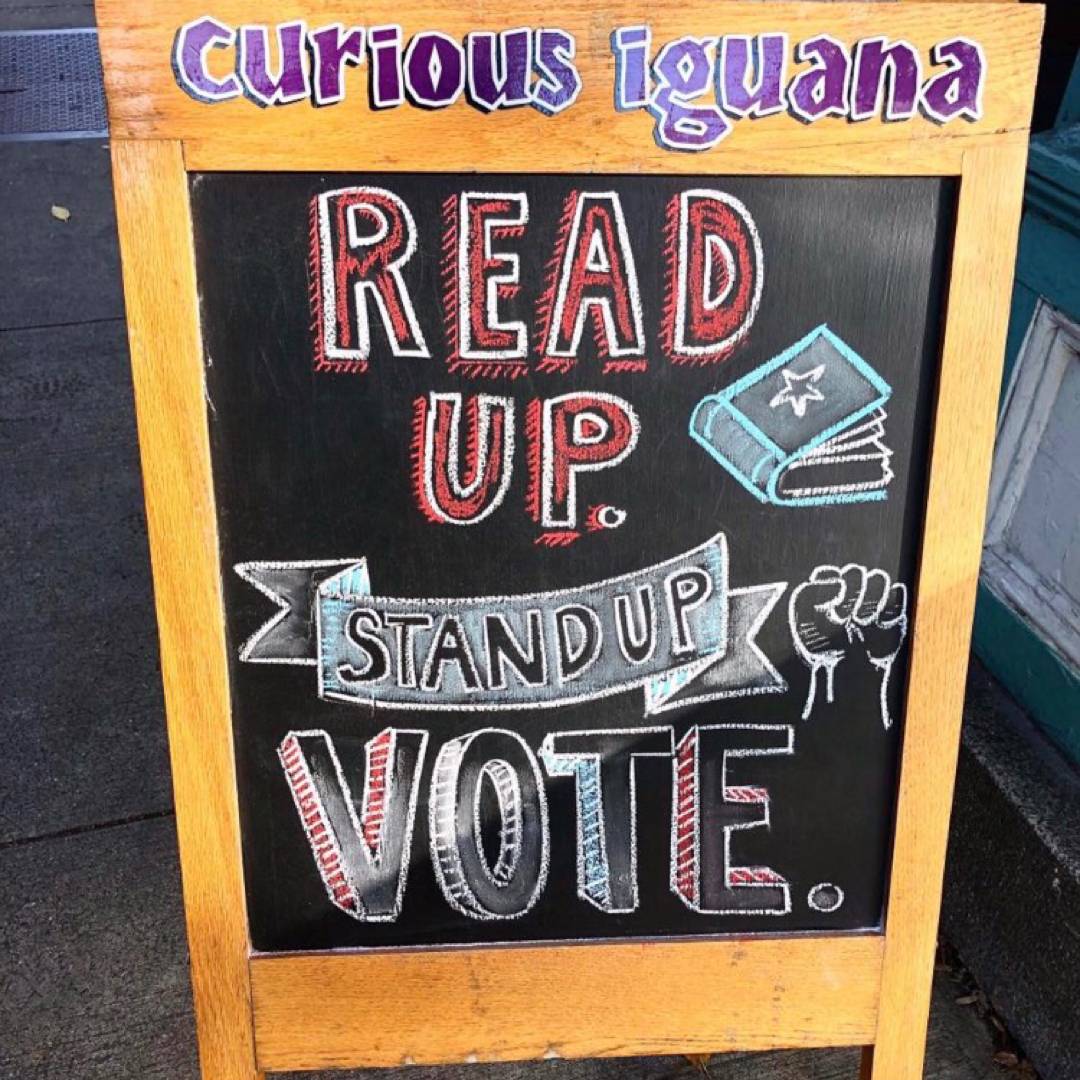 curious iguana
READ
UP.
STAND UP
VOTE.